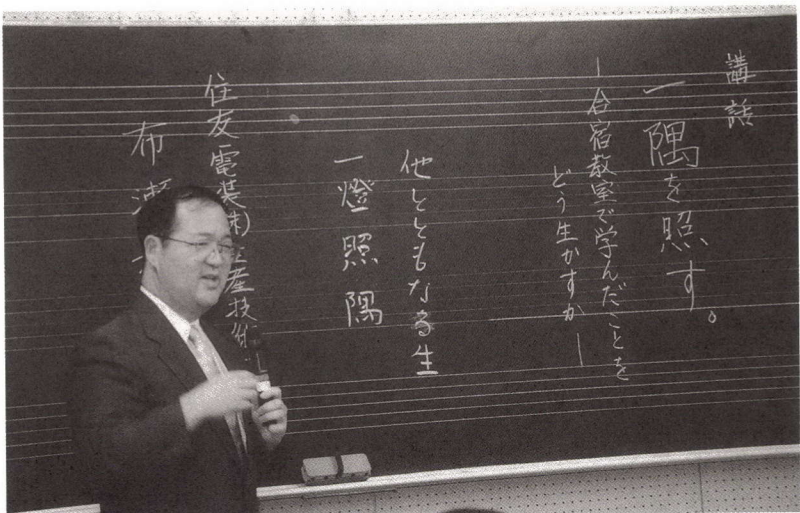 講話
一隅を照す。
―合宿教室で学んだことを
どう生かすか―
他とともなる生
一燈照隅
住友電装(株)生産技術
布瀬